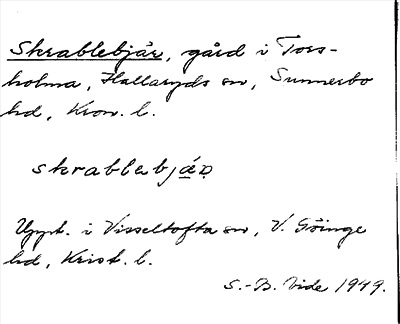 Skrablebjär, gård i Tors-
holma, Hallaryds sn, Sunnerbo
hd, Kron. l.
skrablebjáʀ
Uppt. i Visseltofta sn, V. Göinge
hd, Krist. l.
S.-B. Vide 1949.